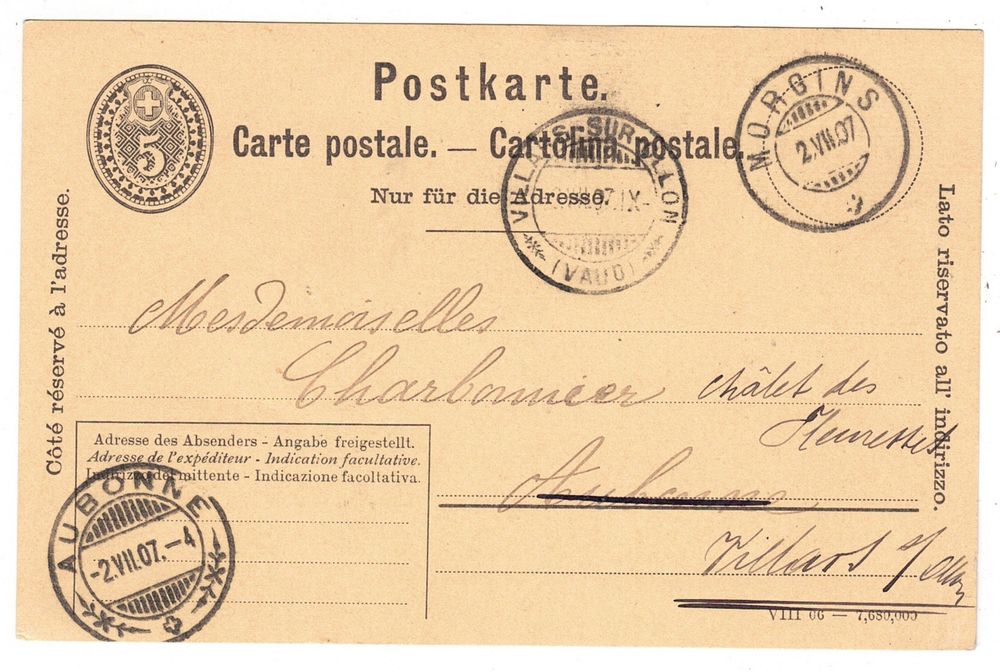 5
Postkarte.
Carte postale. — Cartolina postale.
Nur für die Adresse.
MORGINS
2.VII.07
VILLARS-SUR-OLLON
VII.07.IX-
(VAUD)
Côté réservé à l'adresse.
Lato riservato all' indirizzo.
Mesdemoiselles
Charbonnier châlet des
Aubonne
Villars s/
Adresse des Absenders - Angabe freigestellt.
Adresse de l'expéditeur - Indication facultative.
Indirizzo del mittente - Indicazione facoltativa.
AUBONNE
-2.VII.07.-4
VIII 06 — 7,680,000